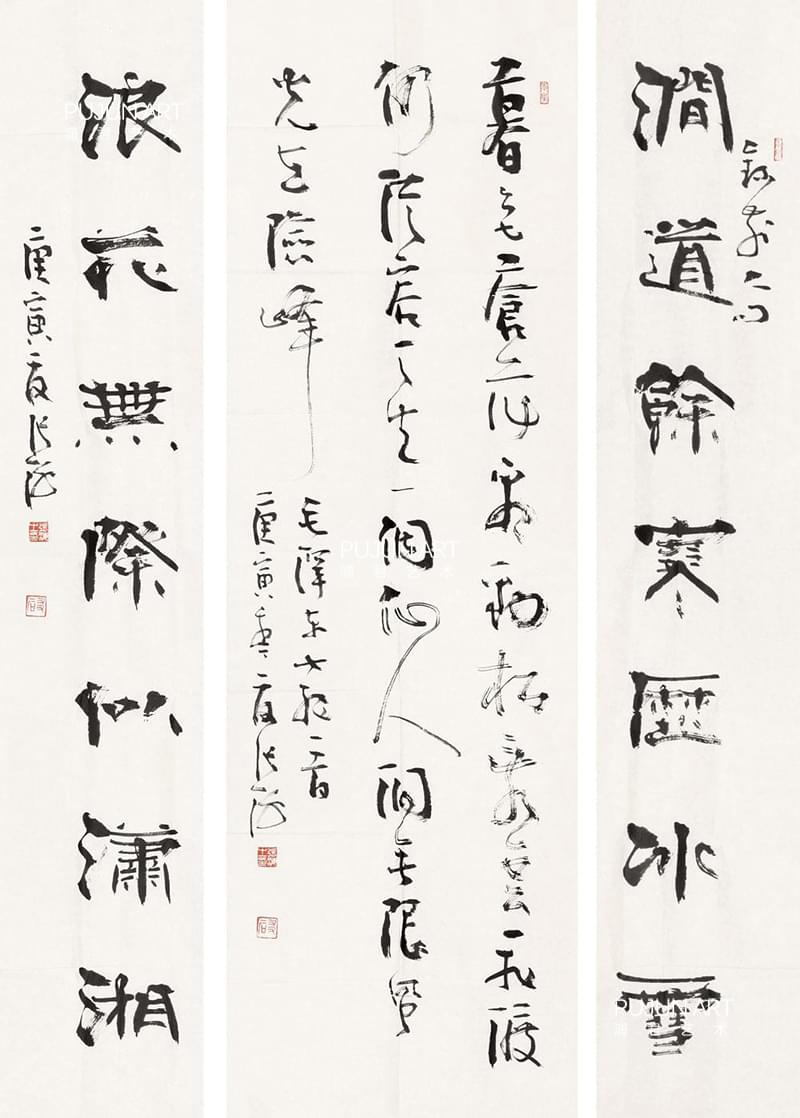 澗道餘寒歷冰雪
暮色蒼茫看勁松亂雲飛渡
仍從容天生一個仙人洞無限風
光在險峰
毛澤東七絕一首
庚寅夏張
浪花無際似瀟湘
庚寅夏張
PUJUN ART
PUJUN ART
PUJUN ART